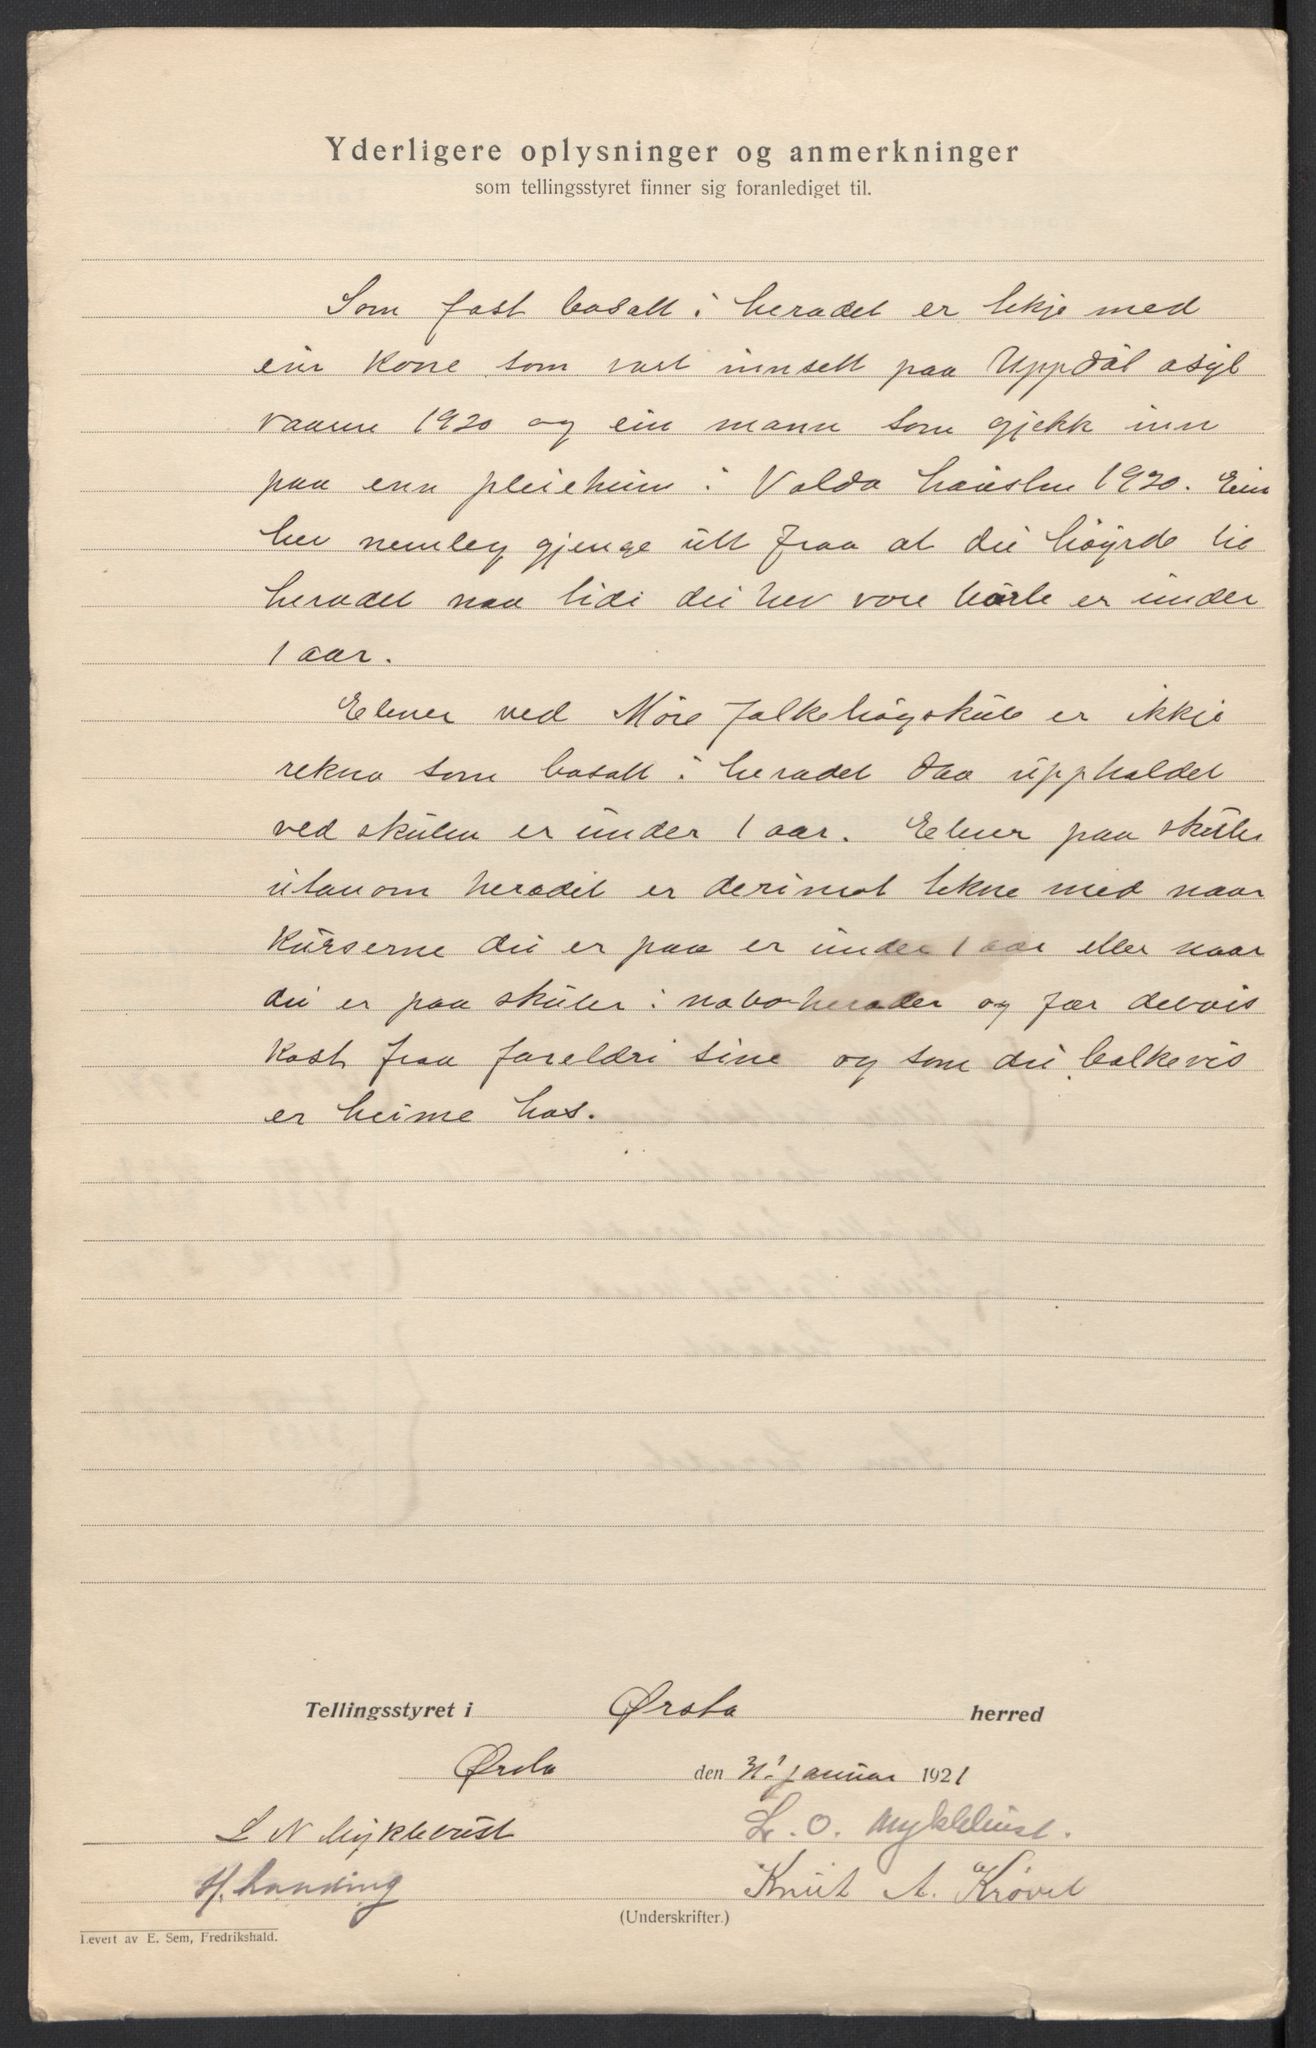 Yderligere oplysninger og anmerkninger
som tellingsstyret finner sig foranlediget til.
Som fast bosatt i heradet er tekje med
ein kone som vart innsett paa Uppdøl asyl
vaaren 1920 og ein mann som gjekk inn
paa enn pleieheim i Volda hausten 1920. Ein
hev nemleg gjenge utt fraa at dei høyrde til
heradet naa tidi dei hev vore borte er under
1 aar.
Elever ved Møre folkehøgskule er ikkje
rekna som bosatt i heradet daa uppholdet
ved skulen er under 1 aar. Elever paa skuler
utanom heradet er derimot tekne med naar
kurserne dei er paa er under 1 aar eller naar
dei er paa skuler i naboherader og fær delvis
kost fraa foreldri sine og som dei bolkevis
er heime hos.
Tellingsstyret i Ørsta herred
Ørsta den 31. januar 1921
L N Myklebust L. O. Myklebust.
H. Landing Knut A. Krøvel
(Underskrifter.)
Levert av E. Sem, Fredrikshald.